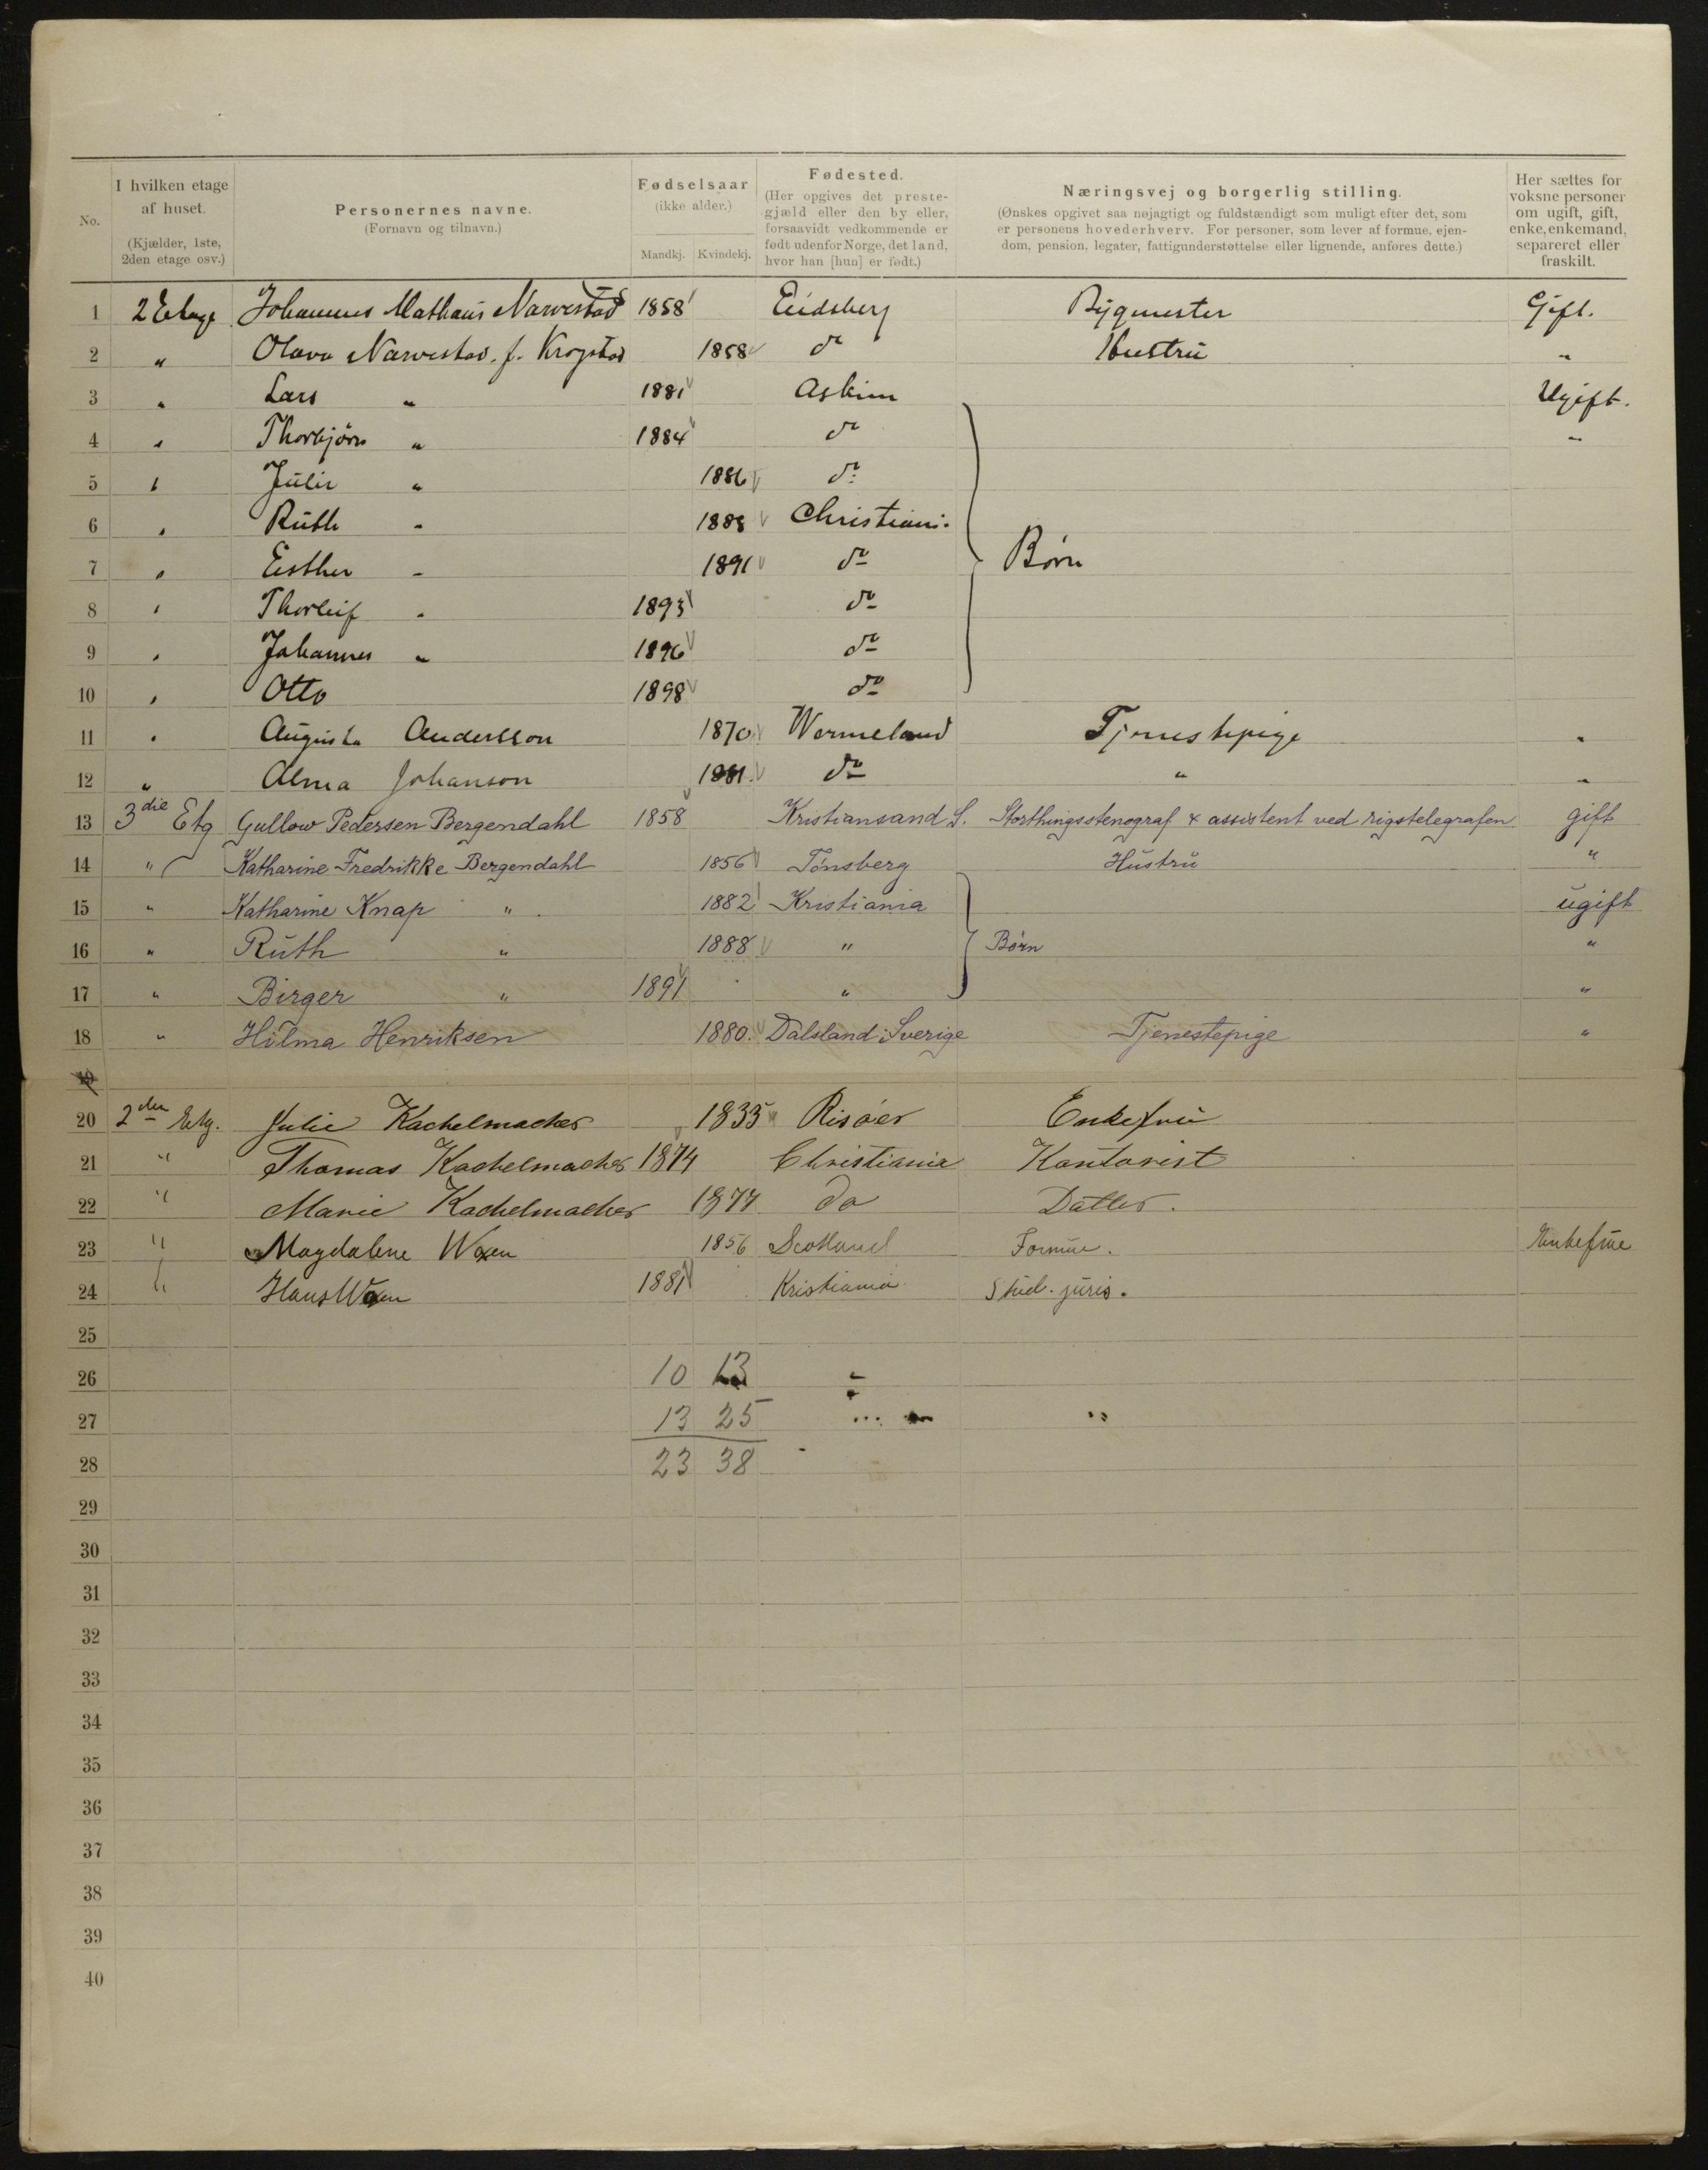 No.
I hvilken etage af huset. (Kjælder, 1ste, 2den etage osv.)
Personernes navne. (Fornavn og tilnavn.)
Fødselsaar (ikke alder.) Mandkj. Kvindekj.
Fødested. (Her opgives det prestegjæld eller den by eller, forsaavidt vedkommende er født udenfor Norge, det land, hvor han [hun] er født.)
Næringsvej og borgerlig stilling. (Ønskes opgivet saa nøjagtigt og fuldstændigt som muligt efter det, som er personens hovederhverv. For personer, som lever af formue, ejendom, pension, legater, fattigunderstøttelse eller lignende, anføres dette.)
Her sættes for voksne personer om ugift, gift, enke, enkemand, separeret eller fraskilt.
1 2 Etage Johannes Mathæus Narvestad 1858 Eidsberg Bygmester Gift.
2 " Olava Narvestad. f. Krogstad 1858 do Hustru "
3 " Lars " 1881 Askim Ugift.
4 " Thorbjörn " 1884 do "
5 " Julie " 1886 do
6 " Ruth " 1888 Christiani.
7 " Esther " 1891 do Børn
8 " Thorleif " 1893 do
9 " Johannes " 1896 do
10 " Otto 1898 do
11 " Augusta Andersson 1870 Wermeland Tjenestepige "
12 " Alma Johanson 1881. do " "
13 3die Etg Gullow Pedersen Bergendahl 1858 Kristiansand S. Storthingsstenograf & assistent ved rigstelegrafen gift
14 " Katharine Fredrikke Bergendahl 1856 Tönsberg Hustru "
15 " Katharine Knap " 1882 Kristiania ugift
16 " Ruth " 1888 " Børn "
17 " Birger " 1891 " "
18 " Hilma Henriksen 1880. Dalsland Sverige Tjenestepige "
19
20 2den Etg. Julie Kachelmacher 1835 Risöer Enkefru
21 " Thomas Kachelmacher 1874 Christiania Kontorist
22 " Marie Kachelmacher 1877 do Datter.
23 " Magdalene 1856 Scotland Formue. Enkefrue
24 " Hans 1881 Kristiania Stud. juris.
25
26 10 13
27 13 25
28 23 38
29
30
31
32
33
34
35
36
37
38
39
40